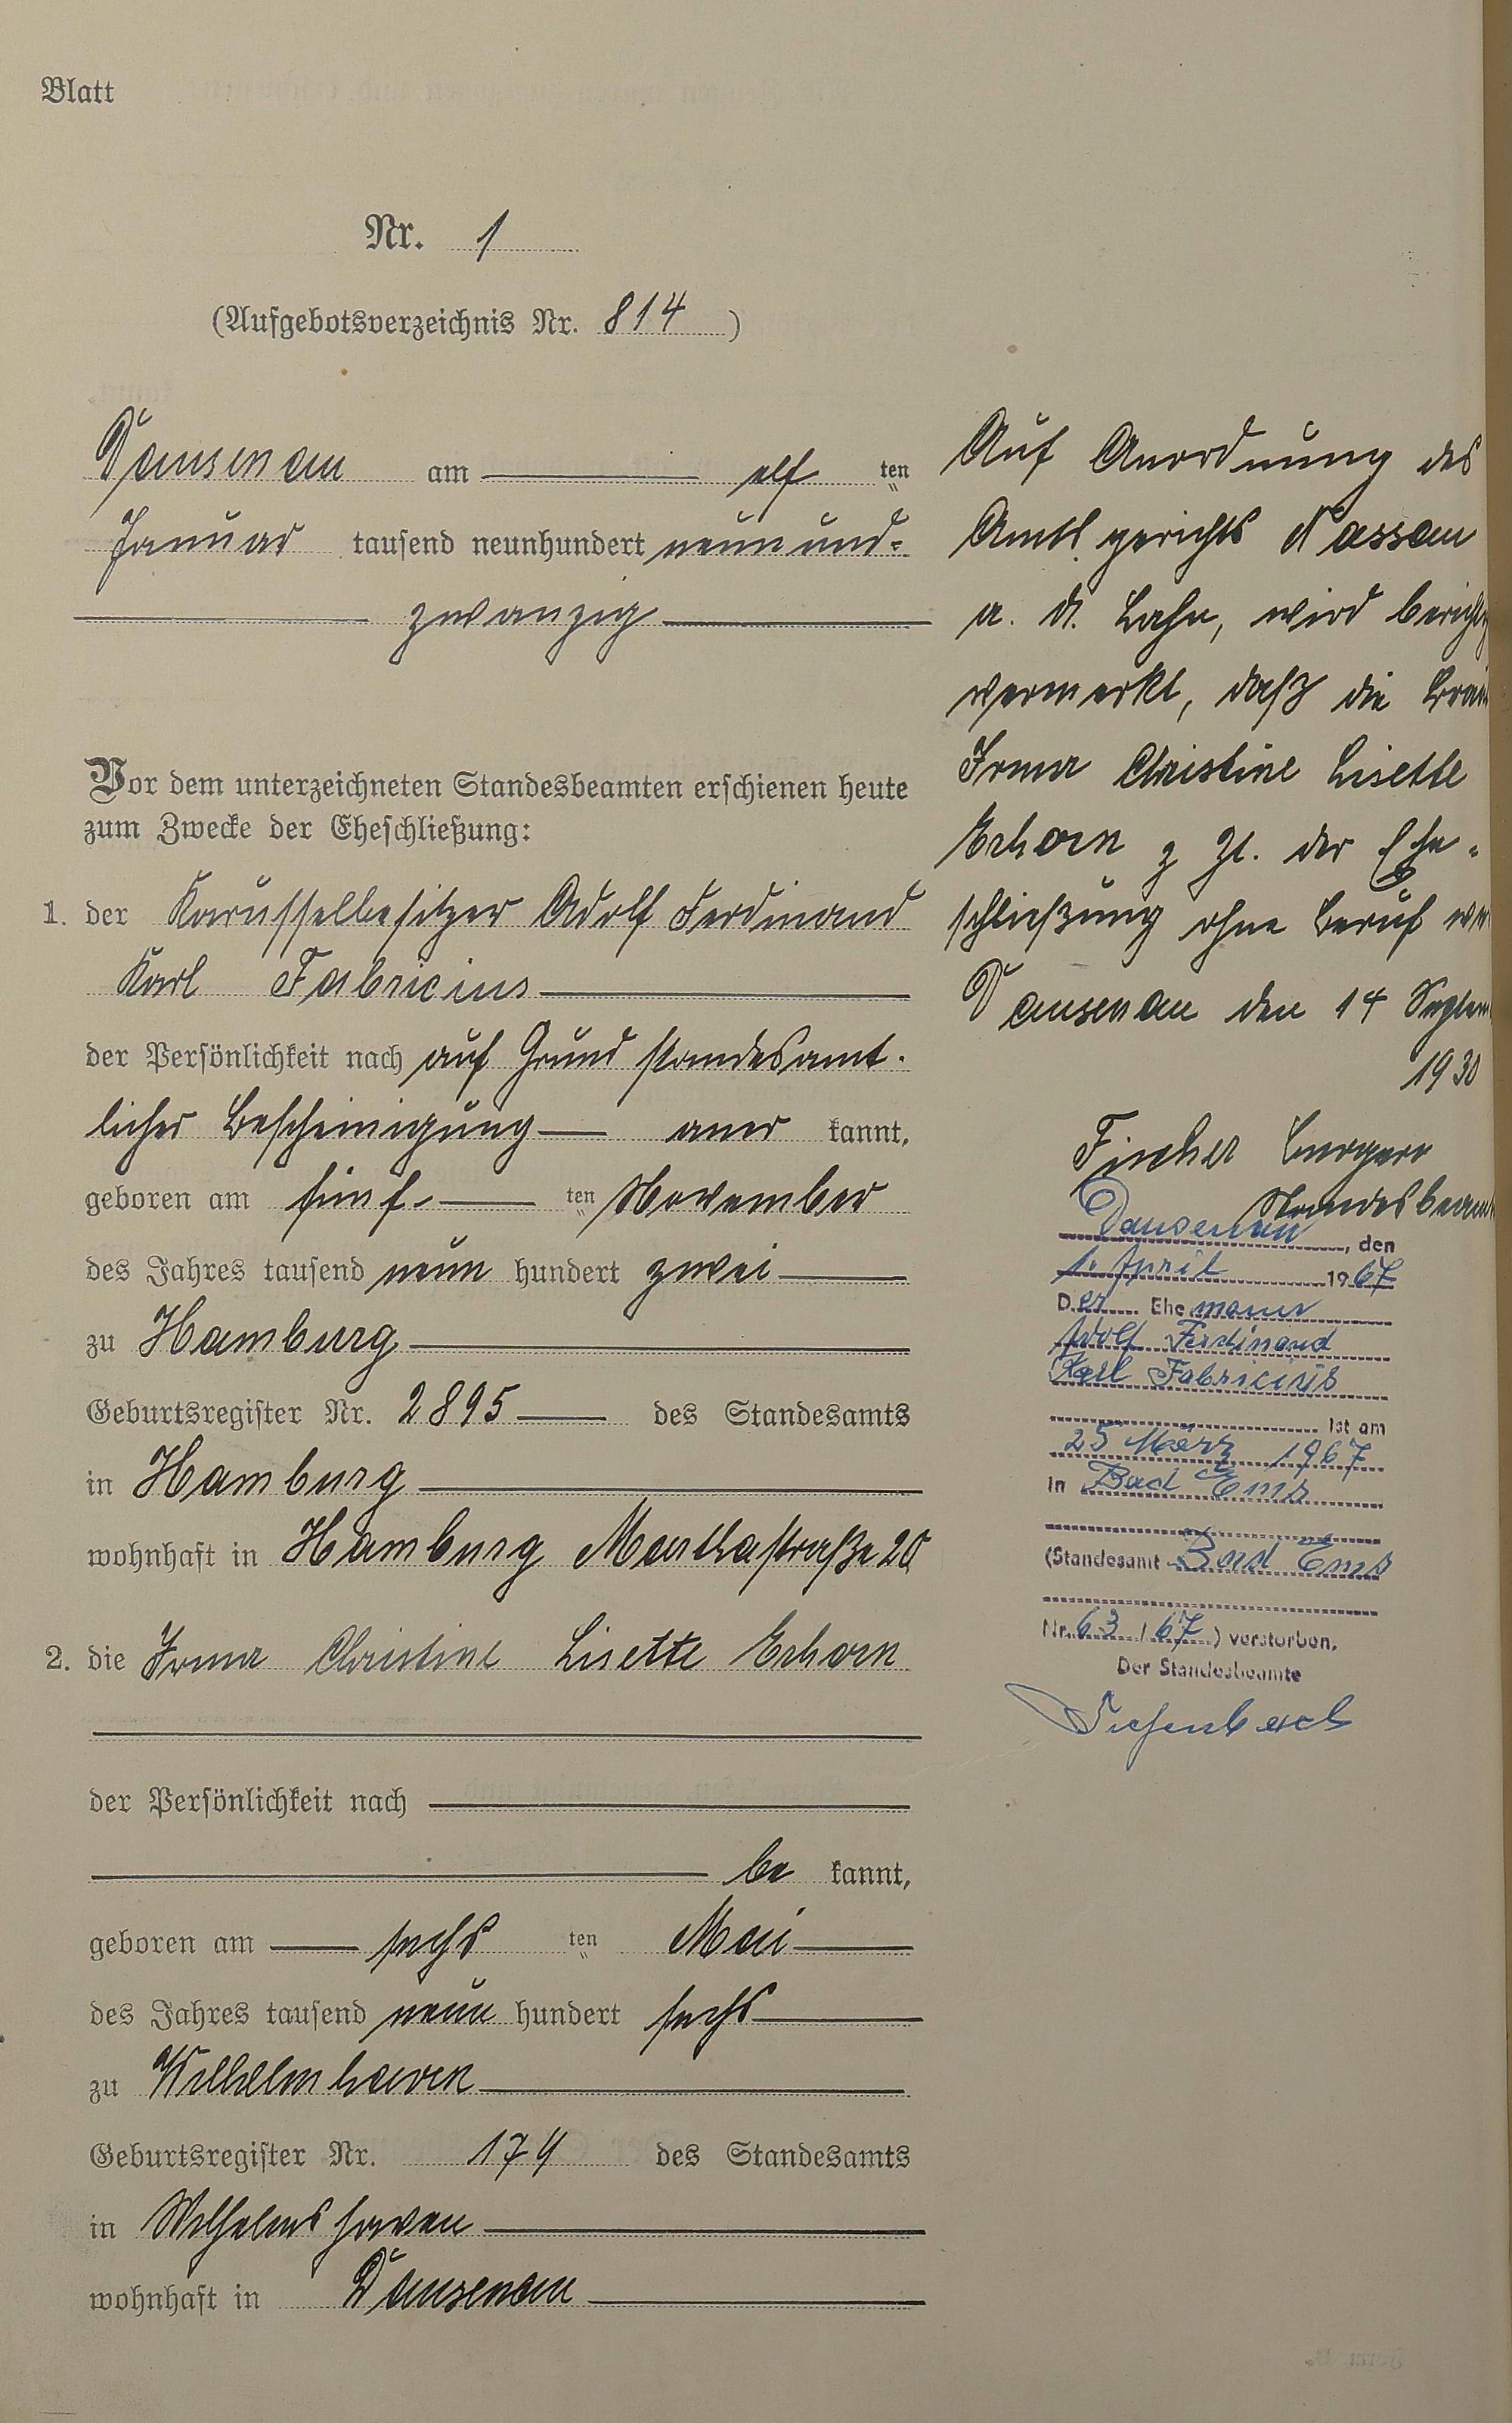 Blatt
Nr. 1
(Aufgebotsverzeichnis Nr. 814)
Dausenau am elf ten
Januar tausend neunhundert neunund=
zwanzig
Vor dem unterzeichneten Standesbeamten erschienen heute
zum Zwecke der Eheschließung:
1. der Karusselbesitzer Adolf Ferdinand
Karl Fabricius
der Persönlichkeit nach auf Grund standesamt-
licher Bescheinigung aner kannt,
geboren am fünf ten November
des Jahres tausend neun hundert zwei
zu Hamburg
Geburtsregister Nr. 2895 des Standesamts
in Hamburg
wohnhaft in Hamburg Marthastraße 20
2. die Irma Christine Lisette Erhorn
der Persönlichkeit nach
be kannt,
geboren am sechs ten Mai
des Jahres tausend neun hundert sechs
zu Wilhelmshaven
Geburtsregister Nr. 174 des Standesamts
in Wilhelmshaven
wohnhaft in Dausenau
Auf Anordnung des
Amtsgerichts Nassau
a. d. Lahn, wird
vermerkt, daß die
Irma Christine Lisette
Erhorn z Zt. der Ehe-
schließung ohne Beruf
Dausenau den 14
1930
Fischer
Dausenau, den
1. April 1967
Der Ehemann
Adolf Ferdinand
Karl Fabricius
ist am
25 März 1967
in Bad Ems
(Standesamt Bad Ems
Nr. 63 / 67) verstorben.
Der Standesbeamte